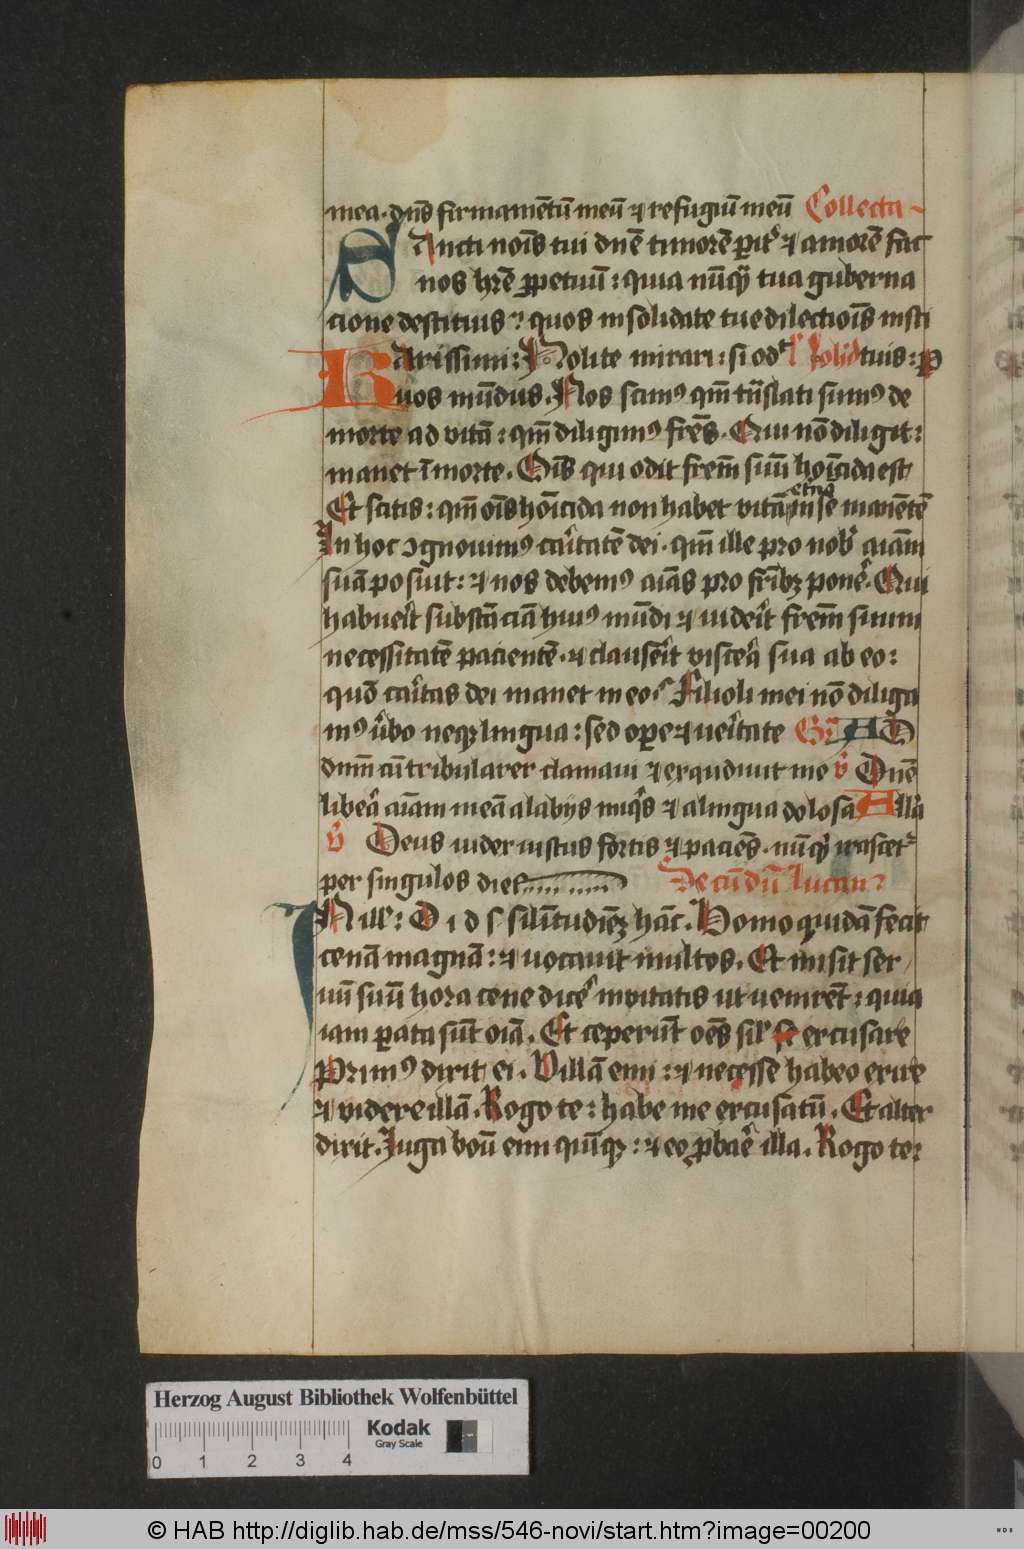 mea. dn̄s firmamētū meū ⁊ refugiū meū Collecta
SAncti nōis tui dn̄e timorē pit̓ ⁊ amorē fac
nos hr̄e ꝑpetuū: quia nūqꝫ tua guberna
cione destituis? quos in solidate tue dilectiōis insti
KArissimi: Nolite mirari: si od' Jolid tuis: p
uos mūdus. Nos scimꝰ qm̄ trāslati sumꝰ de
morte ad vitā: qm̄ diligimꝰ fr̄es. Qui nō diligit:
manet ī morte. Oīs qui odit frēm suū hoīcida est
Et scitis: qm̄ oīs hoīcida non habet vitā et̄nā in se manētē
In hoc ꝯgnouimꝰ car̄itatē dei. qm̄ ille pro nob̓ aīam
suā posuit: ⁊ nos debemꝰ aīas pro fr̄ibꝫ pone᷑. Qui
habuer̄it substāciā huiꝰ mūdi ⁊ uider̄it frēm suum
necessitatē pacientē. ⁊ clauser̄it viscera᷑ sua ab eo:
quō car̄itas dei manet in eo? Filioli mei nō diliga
mꝰ u̓bo neqꝫ lingua: sed oꝑe ⁊ uer̄itate Gr̄ AD
dnm̄ cū tribularer clamaui ⁊ exaudiuit me v̓ Dn̄e
libera᷑ aīam meā a labijs iniq̓s ⁊ a lingua dolosa All̓a
v̓ Deus iudex iustus fortis ⁊ paciēs. nūqꝫ irascet̓
per singulos dies Secūdū Lucam
IN ill̓: D i d s silītudiēꝫ hāc. Homo quidā fecit
cenā magnā: ⁊ uocauit multos. Et misit ser
uū suū hora cene dice᷑ inuitatis ut uenirēt: quia
iam ꝑata sūt oīa. Et ceperūt oēs sil̓ se excusare
Primꝰ dixit ei. Villā emi: ⁊ necesse habeo exire
⁊ videre illā. Rogo te: habe me excusatū. Et alter
dixit. Juga boū emi quīqꝫ: ⁊ eo ꝓbare᷑ illa. Rogo te:
Herzog August Bibliothek Wolfenbüttel
0 1 2 3 4
Kodak
Gray Scale
© HAB http://diglib.hab.de/mss/546-novi/start.htm?image=00200